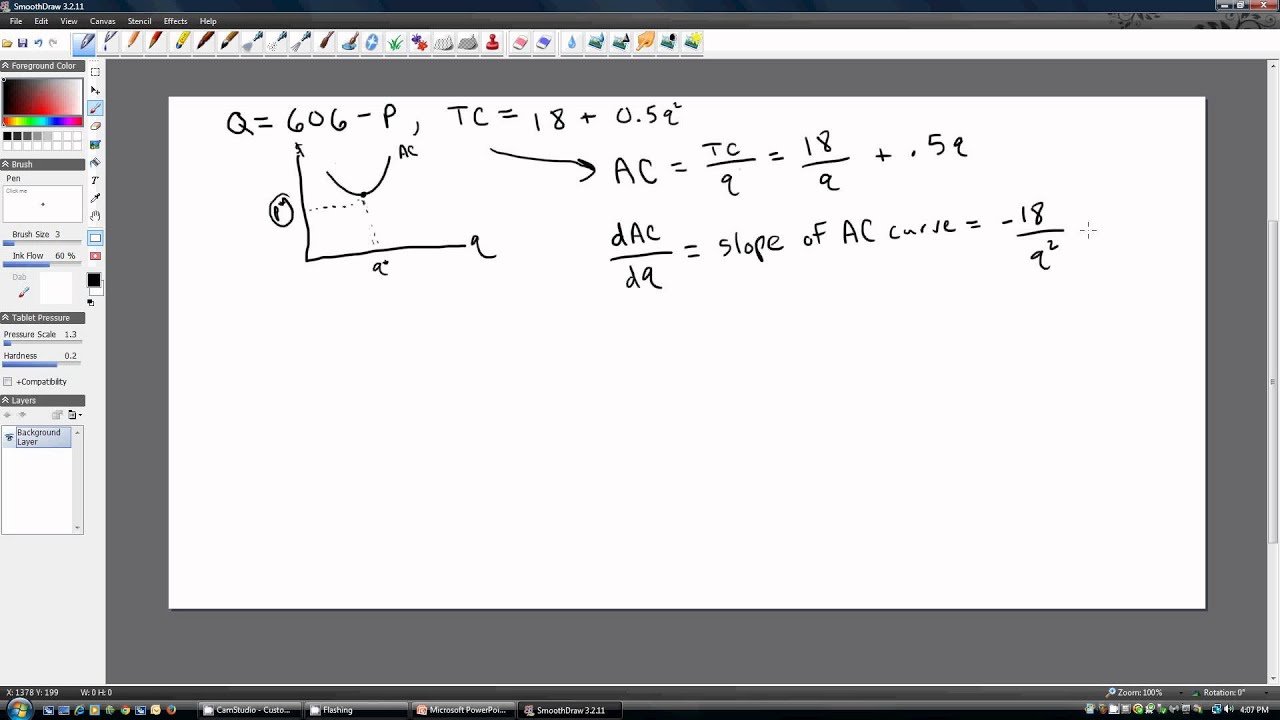 SmoothDraw 3.2.11
File Edit View Canvas Stencil Effects Help
Foreground Color
Brush
Pen
Click me
Brush Size 3
Ink Flow 60 %
Dab
Tablet Pressure
Pressure Scale 1.3
Hardness 0.2
+Compatibility
Layers
Background
Layer
Q = 606 - P, TC = 18 + 0.5q²
AC = TC/q = 18/q + .5q
$
AC
p*
q
q*
dAC/dq = slope of AC curve = -18/q²
X: 1378 Y: 199 W: 0 H: 0
Zoom: 100% Rotation: 0°
CamStudio - Custo... Flashing Microsoft PowerPoi... SmoothDraw 3.2.11
4:07 PM